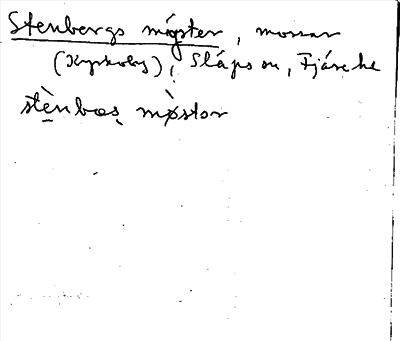 Stenbergs måster, mossar
(Kyrkoby), Släps sn, Fjäre hd
stènbas mɷ̀star